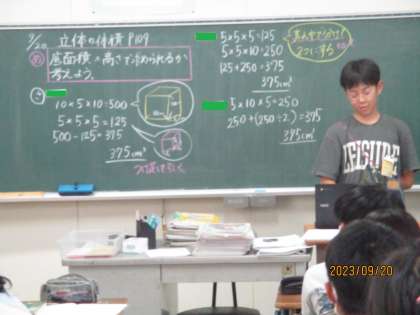 9/20 立体の体積 P109
め 底面積×高さで求められるか
考えよう。
10×5×10=500
5×5×5=125
500-125=375
375cm³
5×5×5=125
5×5×10=250
125+250=375
375cm³
5×10×5=250
250+(250÷2)=375
375cm³
2つにする
LEISURE
2023/09/20